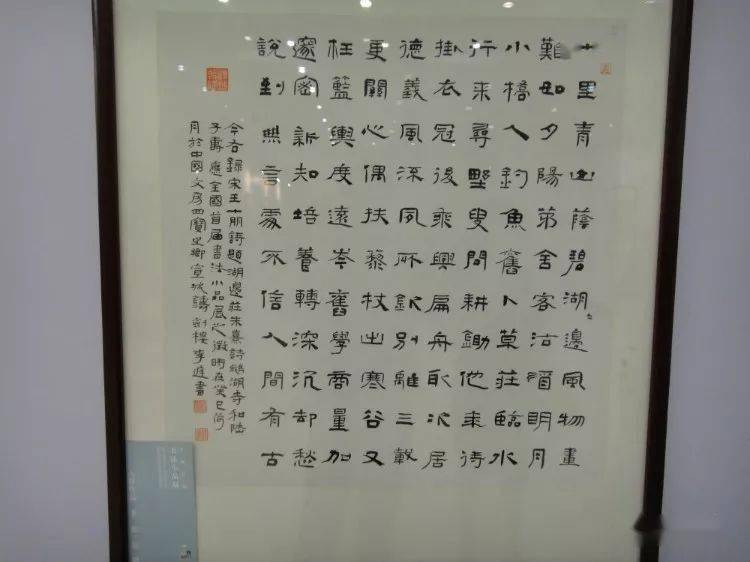 十里青山蔭碧湖〻邊風物畫
難如夕陽茅舍客沽酒明月
小橋人釣魚舊卜草莊臨水
竹来尋野叟問耕鋤他年待
掛衣冠後乘興扁舟取次居
德義風流夙所欽別離三載
更關心偶扶藜杖出寒谷又
枉籃輿度遠岑舊學商量加
邃密新知培養轉深沉却愁
說到無言處不信人間有古
今右錄宋王十朋詩題湖邊莊朱熹詩鵝湖寺和陸
子壽應全國首届書法小品展之徵時在癸巳荷
月於中國文房四寶之鄉宣城鑄劍樓李進書